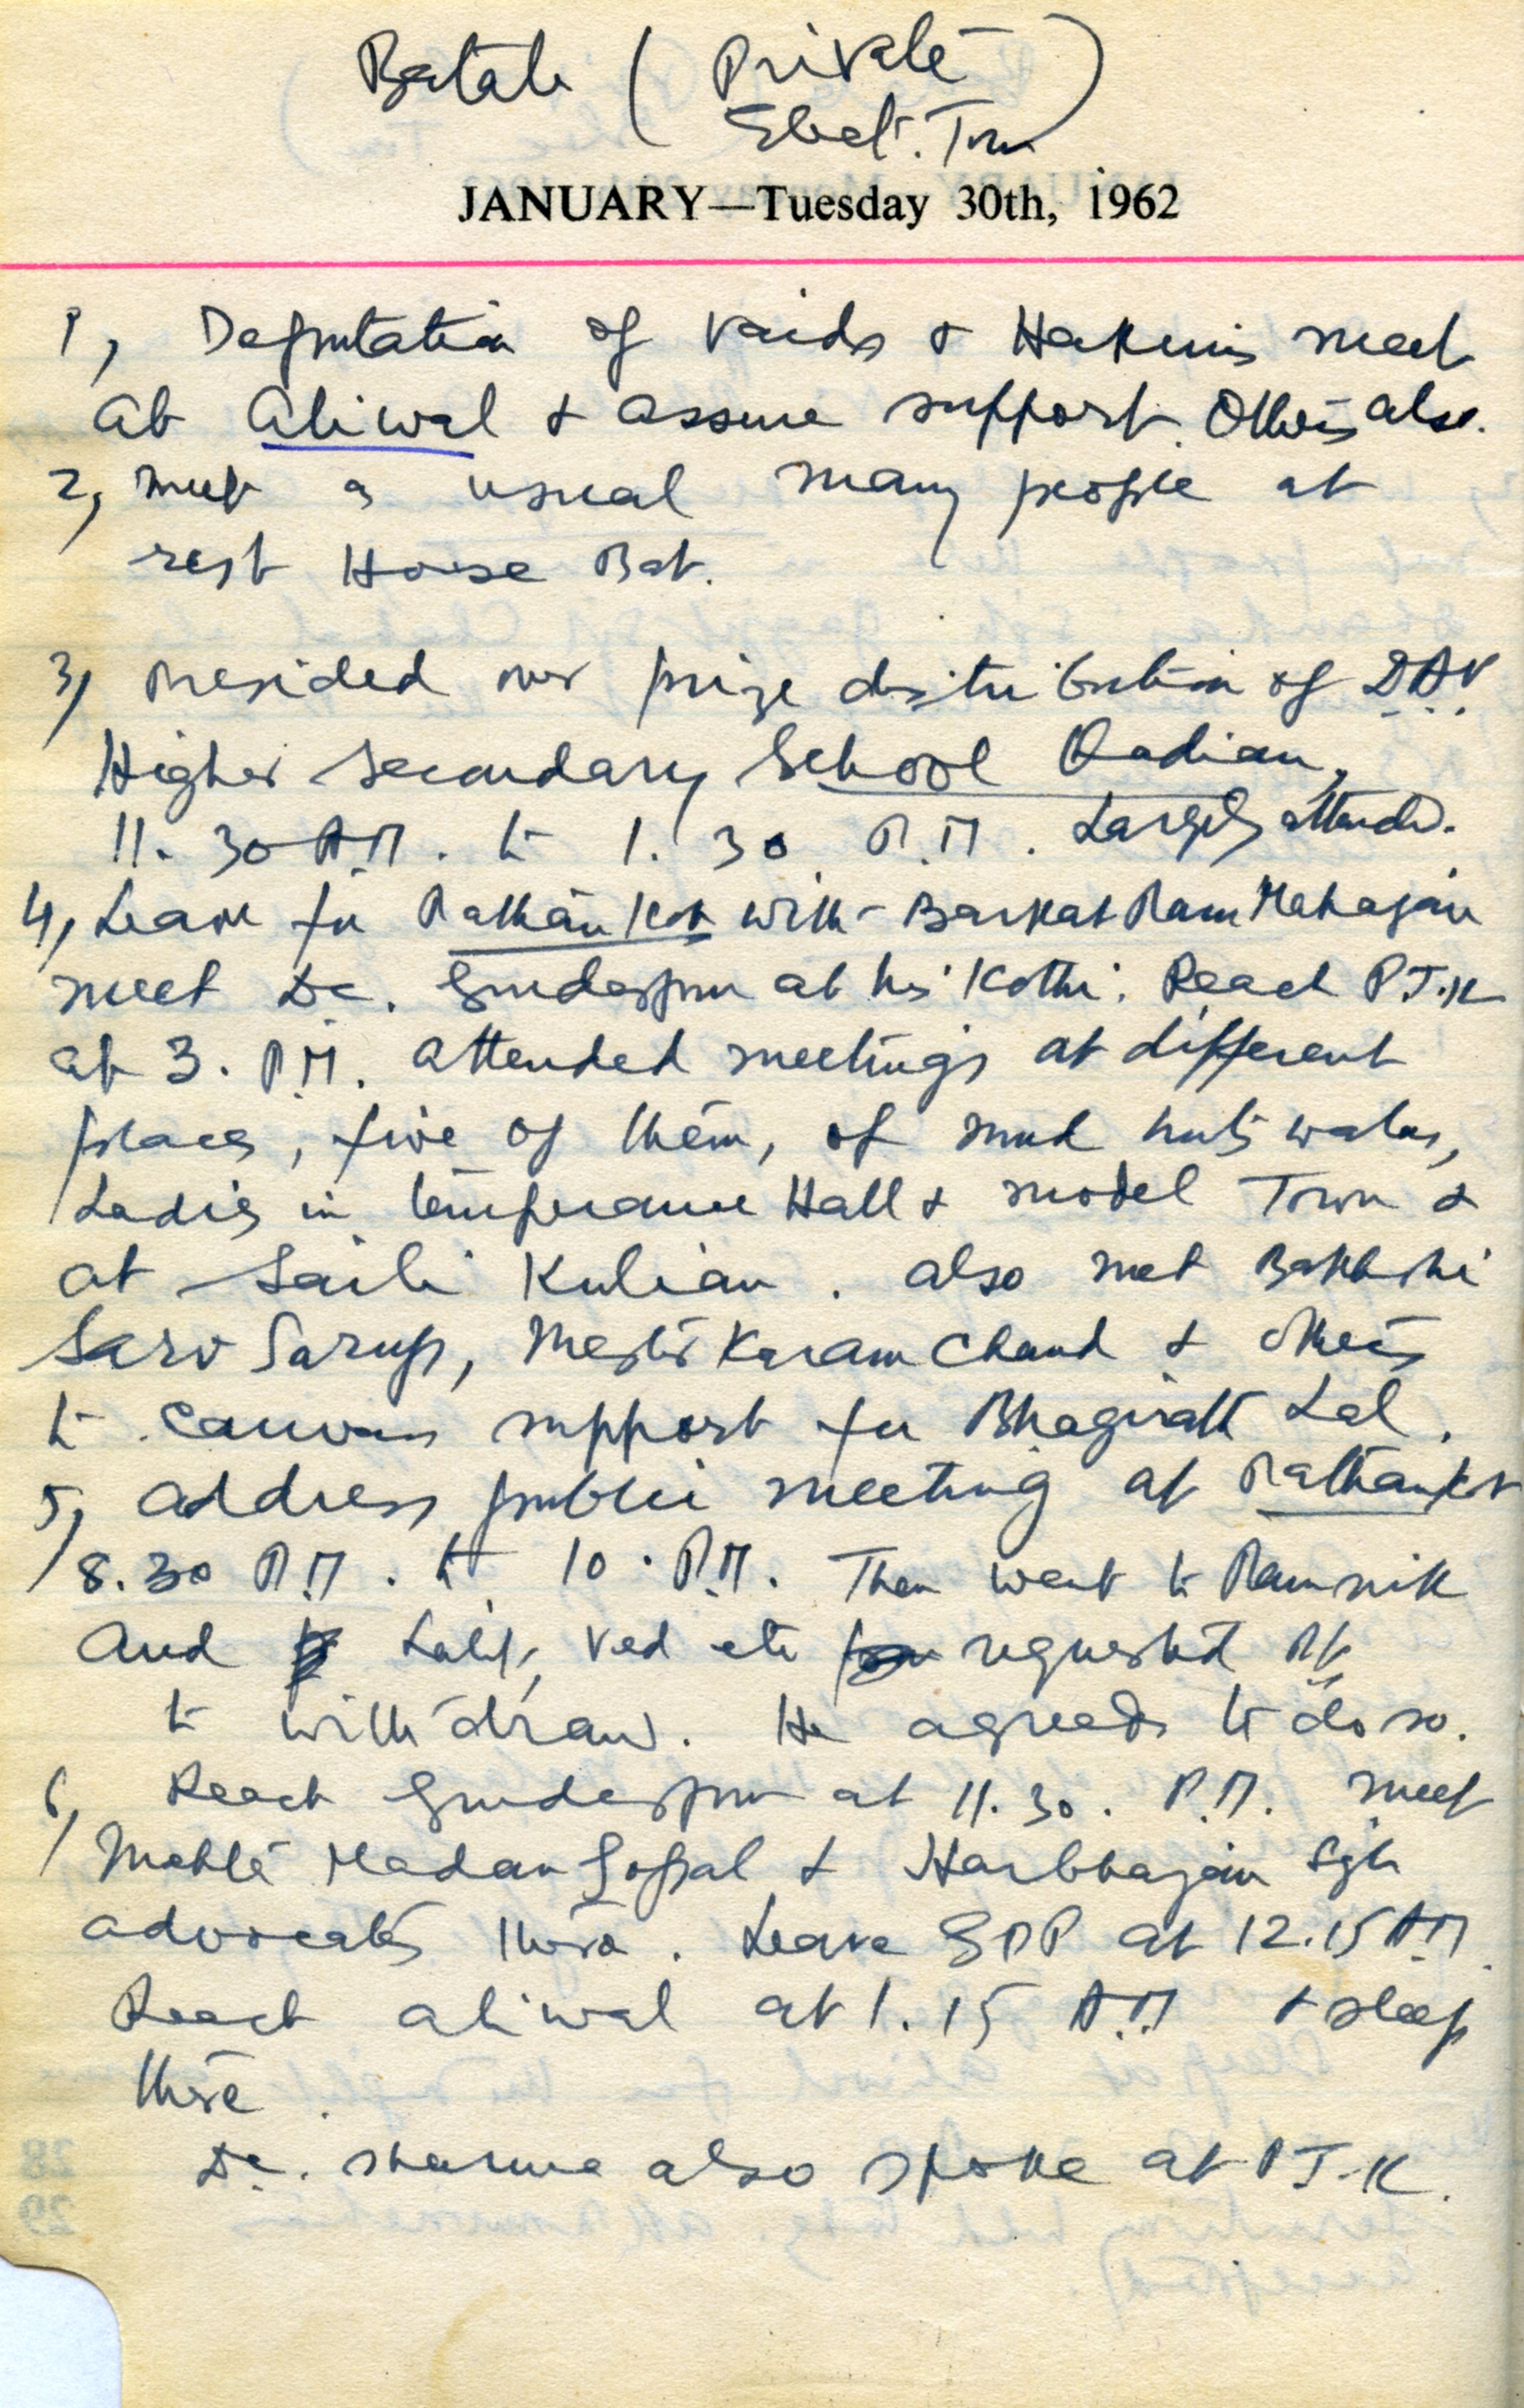 Batala ( Private
Elect. Tour )
JANUARY—Tuesday 30th, 1962
1, Deputation of Vaids & Hakims meet
at Aliwal & assure support. Others also.
2, Meet as usual many people at
rest House Bat.
3, Presided over prize distribution of D.A.V.
Higher Secondary School Qadian,
11.30 A.M. to 1.30 P.M. Largely attended.
4, Leave for Pathankot with Barkat Ram Mahajan
meet D.C. Gurdaspur at his Kothi. Reach P.T.K
at 3. P.M. attended meetings at different
places, five of them, of mud huts walas,
Ladies in temperance Hall & Model Town &
at Saili Kulian. also met Bakhshi
Sarv Sarup, Master Karam Chand & others
to canvass support for Bhagirath Lal.
5, Address public meeting at Pathankot
8.30 P.M. to 10. P.M. Then went to Ramnik
and Lalit, Ved etc requested
to withdraw. He agreeds to do so.
6, Reach Gurdaspur at 11.30. P.M. meet
Mehta Madan Gopal & Harbhajan Sgh
advocates there. Leave GDP at 12.15 A.M.
Reach aliwal at 1.15 A.M & sleep
there.
D.C. Sharma also spoke at P.T.K.
28
29